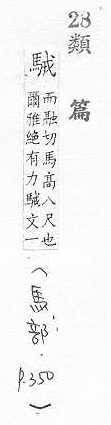 28
類篇
駥
而融切馬高八尺也
爾雅絶有力駥文一
(馬部.
p.350)